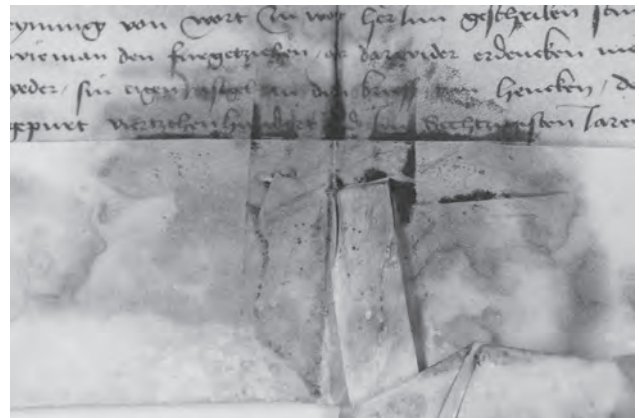 von wort zu wort her Inn geschriben
wieman den furgetziehen, oder darwider erdencken
yeder, sin eigen Insigel an disen brieff hencken,
gepurt viertzehenhundert und Sechtzigesten Jare